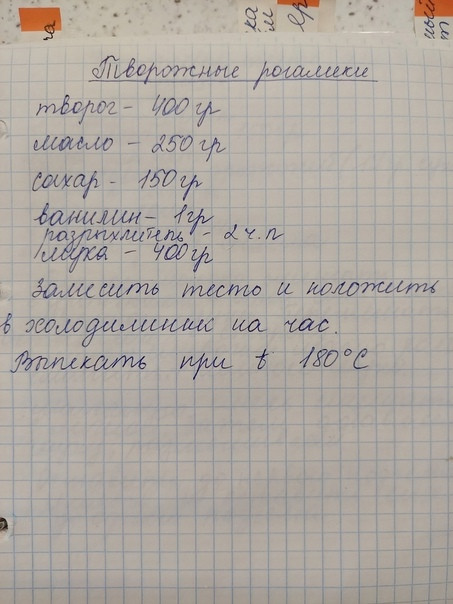 ча
ка
м
ер
ный
т
Творожные рогалики
творог - 400 гр
масло - 250 гр
сахар - 150 гр
ванилин - 1 гр
разрыхлитель - 2 ч. л
мука - 400 гр
Замесить тесто и положить
в холодильник на час.
Выпекать при t 180°C